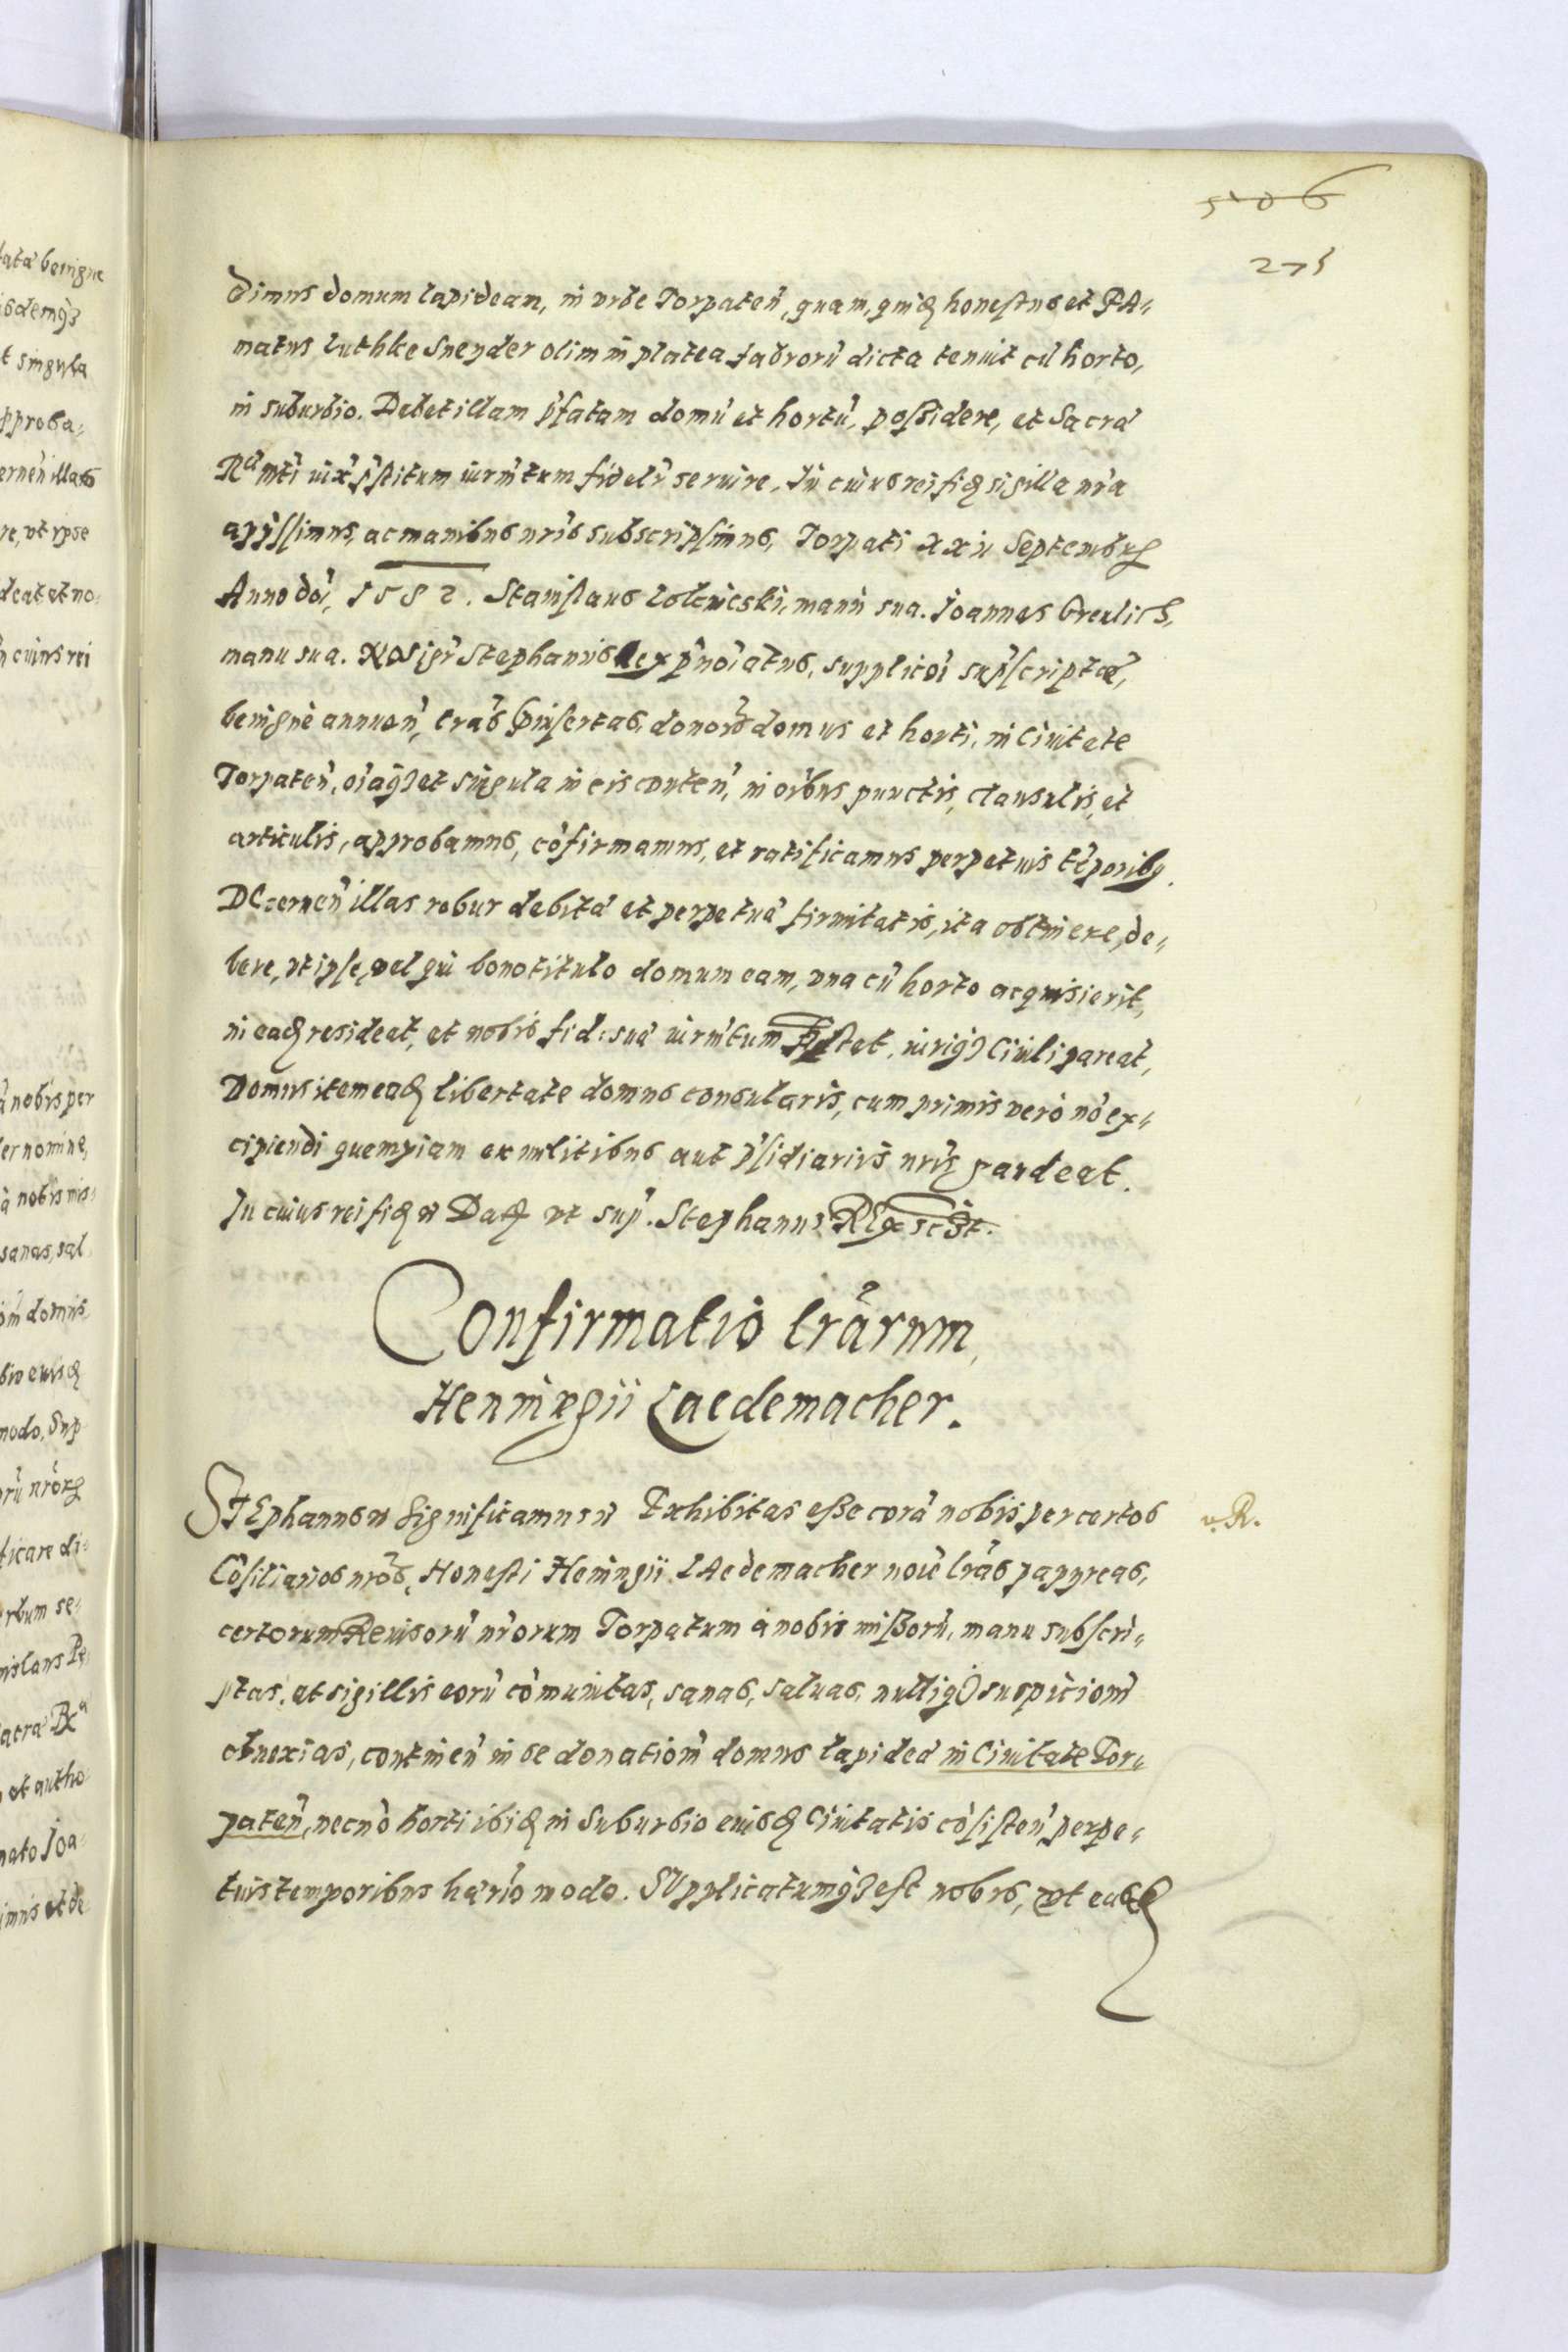 506
275
dimus domum lapideam, in urbe Torpateñ, quam, quid honestus et FA-
matus Luthke Sneyder olim in platea fabrorũ dicta tenuit cũ horto,
in suburbio. Debet illam p̃fatam domũ et hortũ, possidere, et Sacrã
Rᵃ mti iux p̃stitum iurm̃tum fidelr̃ seruire. In cuius rei fid sigilla nr̃a
appr̃ssimus, ac manibus nr̃is subscripsimus, Torpati xxii Septembr
Anno dñi, 1582. Stanislaus manu sua. Joannes Greulich,
manu sua. NOS igr̃ Stephanus Rex p̃noĩatus, supplicõi sup̃scriptæ,
benignè annuen̂, lrãs insertas, donõis domus et horti, in Ciuitate
Torpateñ, oĩaq3 et singula in eis conteñ, in oĩbus punctis, clausulis, et
articulis, approbamus, cõfirmamus, et ratificamus perpetuis tẽporibq.
DEcerneñ illas robur debitã et perpetuã firmitatis, ita obtinere, de-
bere, vt ipse, vel qui bono titulo domum eam, vna cũ horto acquisierit,
in ead resideat, et nobis fid: suã iurm̃tum p̃stet, iuriq3 Ciuili pareat,
Domus item ead libertate domus consularis, cum primis verò nõ ex-
cipiendi quempiam ex militibus aut p̃sidiariis nr̃is gaudeat.
In cuius rei fid Dat vt sup̃. Stephanus REx sc̃st.
Confirmatio lrãrum
Henningii Laedemacher.
STEphanus Significamus Exhibitas esse corã nobis per certos
Cõsiliarios nrõs, Honesti Heningii LAedemacher noiẽ lrãs papyreas,
certorum Reuisorũ nr̃orum Torpatum à nobis missorũ, manu subscri-
ptas, et sigillis eorũ cõmunitas, sanas, saluas, nulliq3 suspicioni
obnoxias, contineñ in se donationẽ domus lapideã in Ciuitate Tor-
pateñ, necnõ horti ibid in Suburbio eiusd Ciuitatis cõsisteñ perpe-
tuis temporibus hær̃io modo. SUpplicatumq3 est nobis, vt easd
v. R.